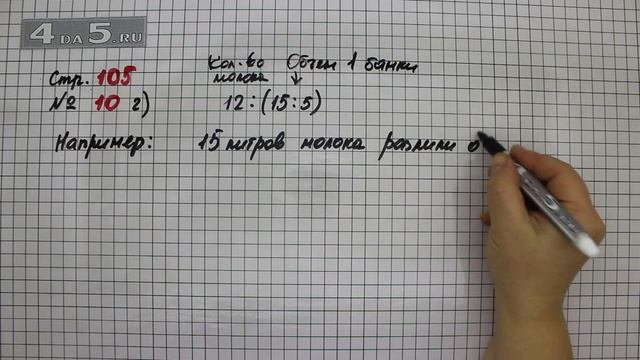 4 DA 5.RU
Кол.во Объем 1 банки
Стр. 105 молока ↓
№ 10 г) 12:(15:5)
Например: 15 литров молока разлили о